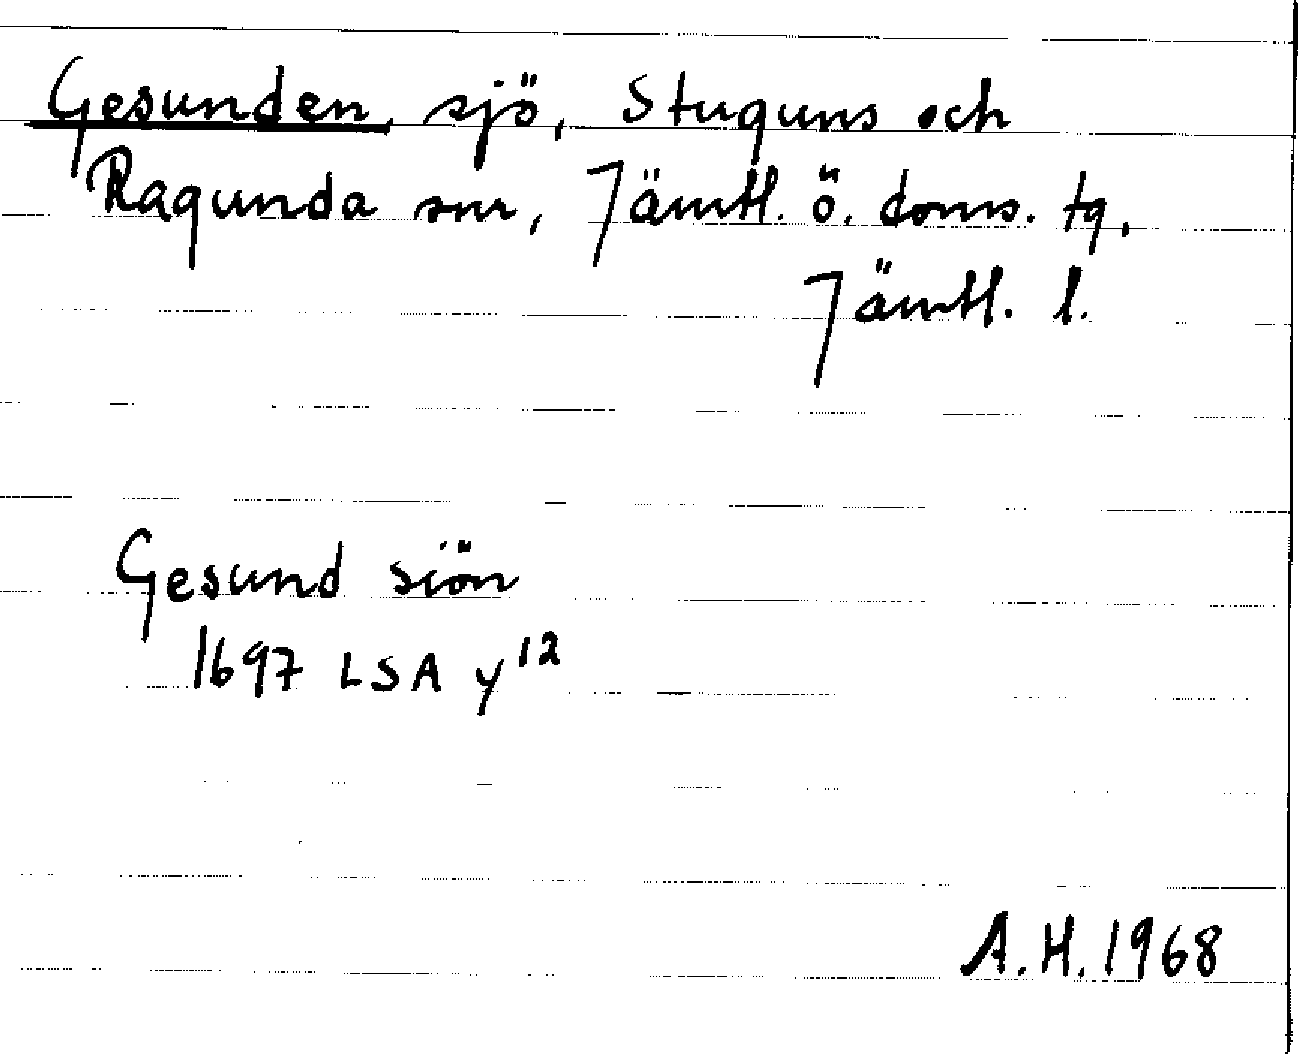 Gesunden, sjö, Stuguns och
Ragunda snr, Jämtl. ö. doms. tg,
Jämtl. l.
Gesund siön
1697 LSA y¹²
A.H. 1968